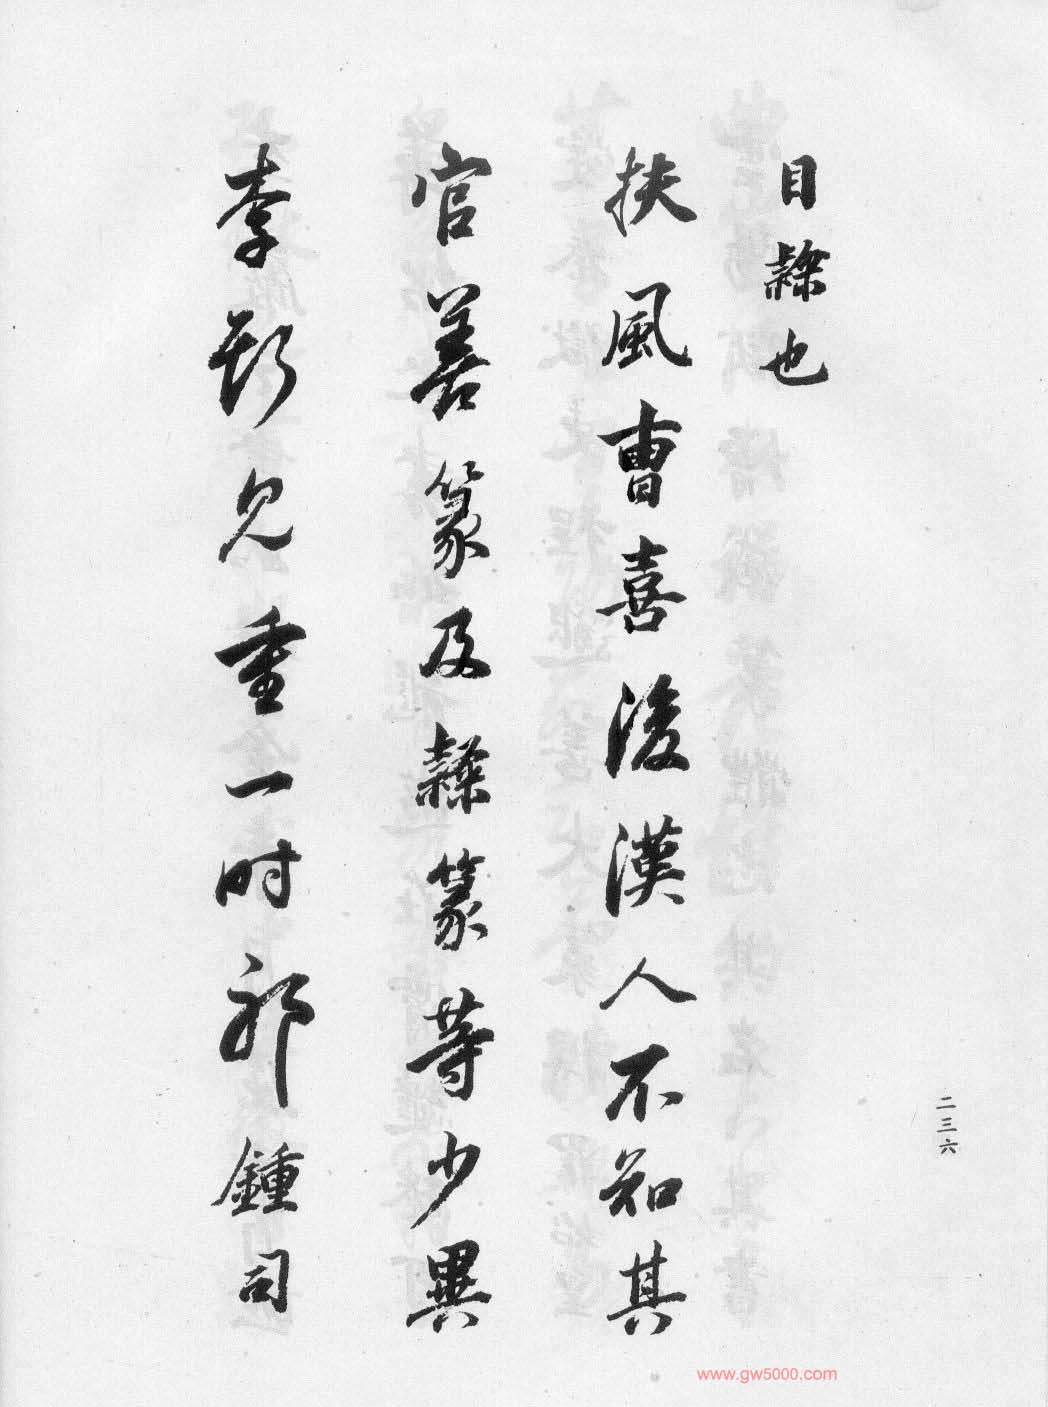 目隸也
扶風曹喜後漢人不知其
官善篆及隸篆等少異
李斯見重一時邪鍾司
二三六
www.gw5000.com